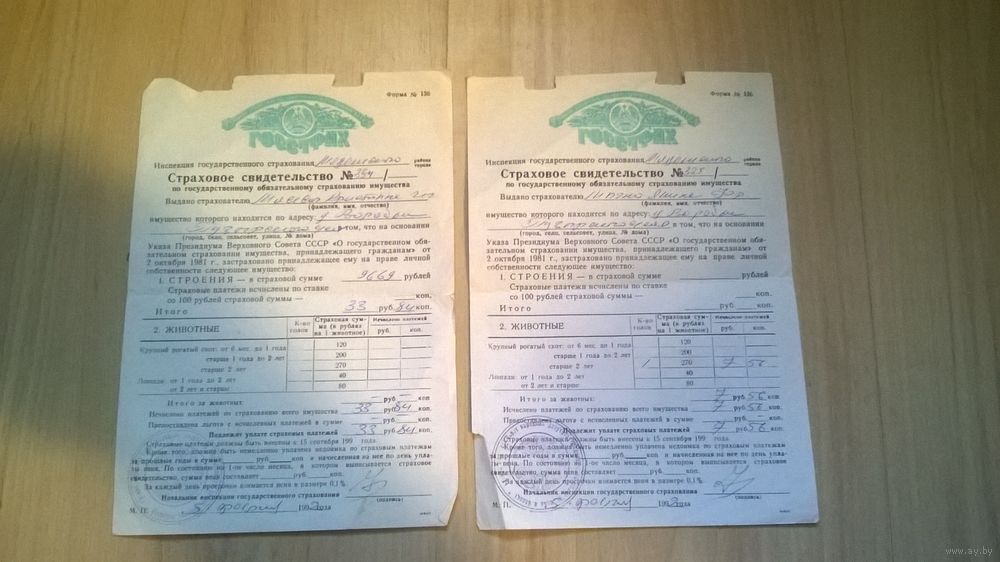 Форма № 136
ГОССТРАХ
Инспекция государственного страхования района города
Страховое свидетельство № 394 /
по государственному обязательному страхованию имущества
Выдано страхователю
(фамилия, имя, отчество)
имущество которого находится по адресу
в том, что на основании
(город, село, сельсовет, улица, № дома)
Указа Президиума Верховного Совета СССР «О государственном обя-
зательном страховании имущества, принадлежащего гражданам» от
2 октября 1981 г., застраховано принадлежащее ему на праве личной
собственности следующее имущество:
1. СТРОЕНИЯ — в страховой сумме 9669 рублей
Страховые платежи исчислены по ставке
со 100 рублей страховой суммы — коп.
Итого 33 руб. 84 коп.
2. ЖИВОТНЫЕ К-во голов Страховая сум-ма (в рублях на 1 животное) Исчислено платежей руб. коп.
Крупный рогатый скот: от 6 мес. до 1 года 120
старше 1 года до 2 лет 200
старше 2 лет 270
Лошади: от 1 года до 2 лет 40
от 2 лет и старше 80
Итого за животных: — руб. — коп.
Исчислено платежей по страхованию всего имущества 33 руб. 84 коп.
Предоставлена льгота с исчисленных платежей в сумме руб. коп.
Подлежит уплате страховых платежей 33 руб. 84 коп.
Страховые платежи должны быть внесены к 15 сентября 199 года.
Кроме того, должна быть неизменно уплачена недоимка по страховым платежам
за прошлые годы в сумме руб. коп. и начисленная на нее по день упла-
ты пеня. По состоянию на 1-ое число месяца, в котором выписывается страховое
свидетельство, сумма пени составляет руб. коп.
За каждый день просрочки взимается пеня в размере 0,1%.
Начальник инспекции государственного страхования
(подпись)
М. П. 199 года
Форма № 136
ГОССТРАХ
Инспекция государственного страхования района города
Страховое свидетельство № 395 /
по государственному обязательному страхованию имущества
Выдано страхователю
(фамилия, имя, отчество)
имущество которого находится по адресу
в том, что на основании
(город, село, сельсовет, улица, № дома)
Указа Президиума Верховного Совета СССР «О государственном обя-
зательном страховании имущества, принадлежащего гражданам» от
2 октября 1981 г., застраховано принадлежащее ему на праве личной
собственности следующее имущество:
1. СТРОЕНИЯ — в страховой сумме рублей
Страховые платежи исчислены по ставке
со 100 рублей страховой суммы — коп.
Итого руб. коп.
2. ЖИВОТНЫЕ К-во голов Страховая сум-ма (в рублях на 1 животное) Исчислено платежей руб. коп.
Крупный рогатый скот: от 6 мес. до 1 года 120
старше 1 года до 2 лет 200
старше 2 лет 1 270 7 56
Лошади: от 1 года до 2 лет 40
от 2 лет и старше 80
Итого за животных: 7 руб. 56 коп.
Исчислено платежей по страхованию всего имущества 7 руб. 56 коп.
Предоставлена льгота с исчисленных платежей в сумме руб. коп.
Подлежит уплате страховых платежей 7 руб. 56 коп.
Страховые платежи должны быть внесены к 15 сентября 199 года.
Кроме того, должна быть неизменно уплачена недоимка по страховым платежам
за прошлые годы в сумме руб. коп. и начисленная на нее по день упла-
ты пеня. По состоянию на 1-ое число месяца, в котором выписывается страховое
свидетельство, сумма пени составляет руб. коп.
За каждый день просрочки взимается пеня в размере 0,1%.
Начальник инспекции государственного страхования
(подпись)
М. П. 199 года
www.ay.by